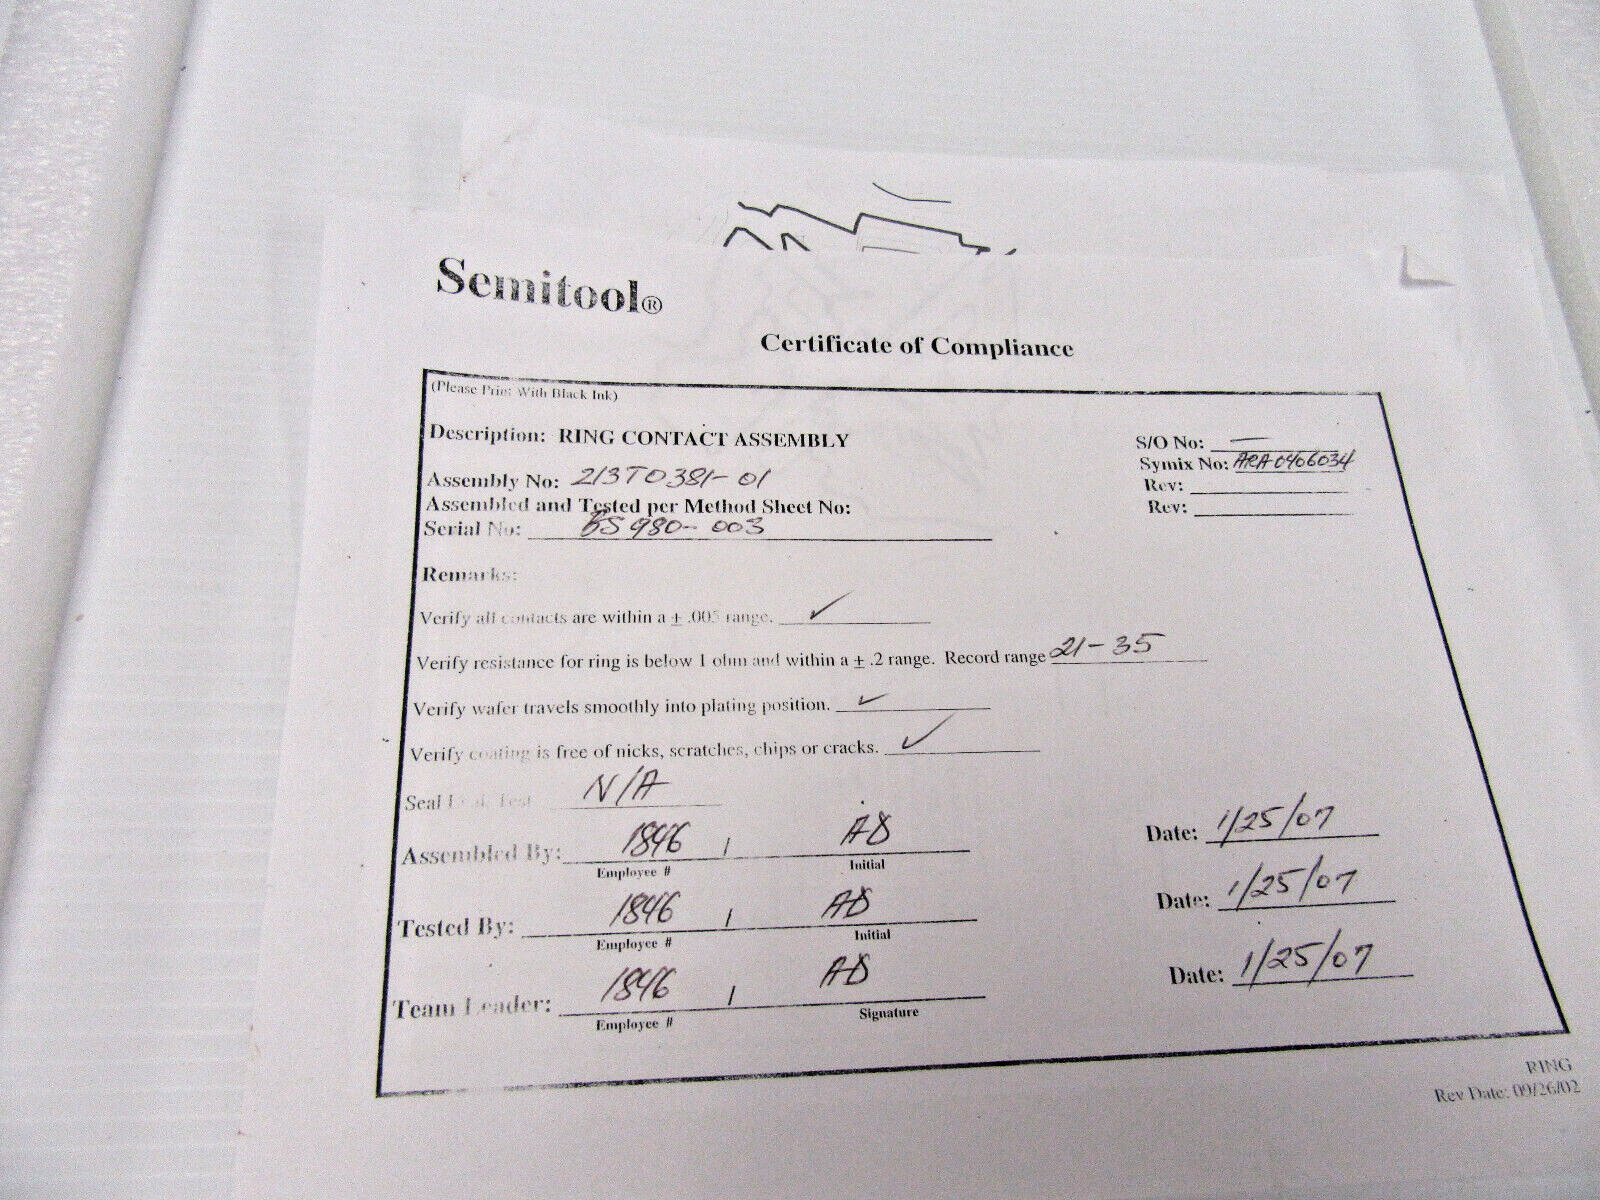 Semitool®
Certificate of Compliance
(Please Print With Black Ink)
Description: RING CONTACT ASSEMBLY
S/O No: —
Assembly No: 213T0381-01
Symix No: ARA0406034
Rev:
Assembled and Tested per Method Sheet No:
Rev:
Serial No: BS980-003
Remarks:
Verify all contacts are within a ± .005 range. ✓
Verify resistance for ring is below 1 ohm and within a ± .2 range. Record range 21-35
Verify wafer travels smoothly into plating position. ✓
Verify coating is free of nicks, scratches, chips or cracks. ✓
Seal Leak Test N/A
Assembled By: 1846 / AD Date: 1/25/07
Employee # Initial
Tested By: 1846 / AD Date: 1/25/07
Employee # Initial
Team Leader: 1846 / AD Date: 1/25/07
Employee # Signature
RING
Rev Date: 09/26/02